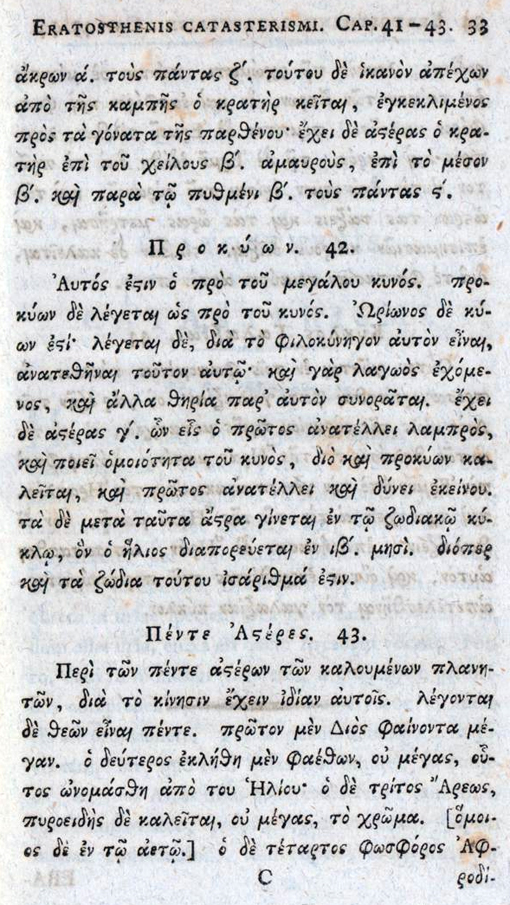 ERATOSTHENIS CATASTERISMI. CAP. 41-43. 33
ἄκρων ά. τοὺς πάντας ζ΄. τούτου δὲ ἱκανὸν ἀπέχων
ἀπὸ τῆς καμπῆς ὁ κρατὴρ κεῖται, ἐγκεκλιμένος
πρὸς τὰ γόνατα τῆς παρθένου· ἔχει δὲ ἀϛέρας ὁ κρα-
τὴρ ἐπὶ τοῦ χείλους β΄. ἀμαυροὺς, ἐπὶ τὸ μέσον
β΄. καὶ παρὰ τῷ πυθμένι β΄. τοὺς πάντας ϛ΄.
Προκύων. 42.
Ἀυτός ἐϛιν ὁ πρὸ τοῦ μεγάλου κυνός. προ-
κύων δὲ λέγεται ὡς πρὸ τοῦ κυνός. Ὠρίωνος δὲ κύ-
ων ἐϛί· λέγεται δὲ, διὰ τὸ φιλοκύνηγον ἀυτὸν εἶναι,
ἀνατεθῆναι τοῦτον ἀυτῷ· καὶ γὰρ λαγωὸς ἐχόμε-
νος, καὶ ἄλλα θηρία παρ' ἀυτὸν συνορᾶται. ἔχει
δὲ ἀϛέρας γ΄. ὧν εἷς ὁ πρῶτος ἀνατέλλει λαμπρὸς,
καὶ ποιεῖ ὁμοιότητα τοῦ κυνὸς, διὸ καὶ προκύων κα-
λεῖται, καὶ πρῶτος ἀνατέλλει καὶ δύνει ἐκείνου.
τὰ δὲ μετὰ ταῦτα ἄϛρα γίνεται ἐν τῷ ζωδιακῷ κύ-
κλῳ, ὃν ὁ ἥλιος διαπορεύεται ἐν ιβ΄. μησὶ· διόπερ
καὶ τὰ ζώδια τούτου ἰσάριθμά ἐϛιν.
Πέντε Ἀϛέρες. 43.
Περὶ τῶν πέντε ἀϛέρων τῶν καλουμένων πλανη-
τῶν, διὰ τὸ κίνησιν ἔχειν ἰδίαν ἀυτοῖς. λέγονται
δὲ θεῶν εἶναι πέντε. πρῶτον μὲν Διὸς φαίνοντα μέ-
γαν. ὁ δεύτερος ἐκλήθη μὲν φαέθων, οὐ μέγας, οὗ-
τος ὠνομάσθη ἀπὸ του Ἡλίου· ὁ δὲ τρίτος Ἄρεως,
πυροειδὴς δὲ καλεῖται, οὐ μέγας, τὸ χρῶμα. [ὅμοι-
ος δὲ ἐν τῷ ἀετῷ.] ὁ δὲ τέταρτος φωσφόρος Ἀφ-
C ροδί-